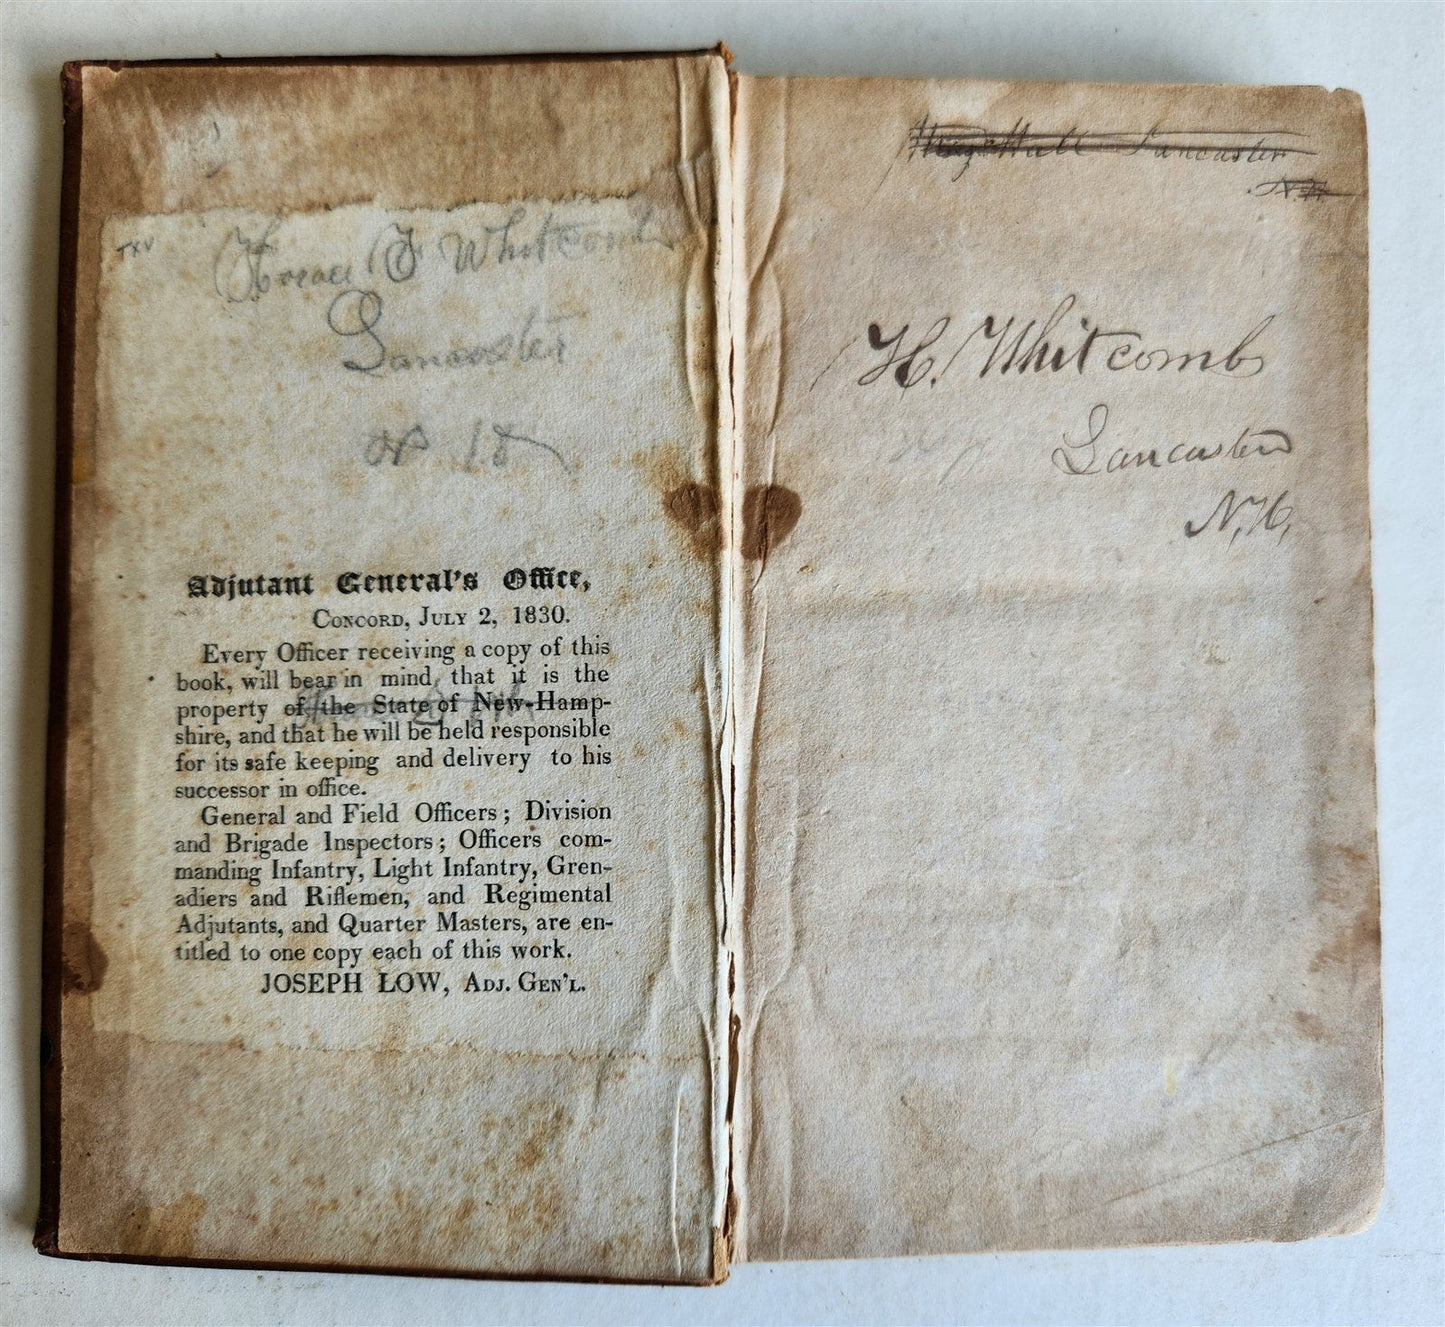 TXV
Horace F Whitcomb
Lancaster
Adjutant General's Office,
Concord, July 2, 1830.
Every Officer receiving a copy of this
book, will bear in mind, that it is the
property of the State of New-Hamp-
shire, and that he will be held responsible
for its safe keeping and delivery to his
successor in office.
General and Field Officers; Division
and Brigade Inspectors; Officers com-
manding Infantry, Light Infantry, Gren-
adiers and Riflemen, and Regimental
Adjutants, and Quarter Masters, are en-
titled to one copy each of this work.
JOSEPH LOW, Adj. Gen'l.
Hall Lancaster
N.H.
H. Whitcomb
Lancaster
N.H,